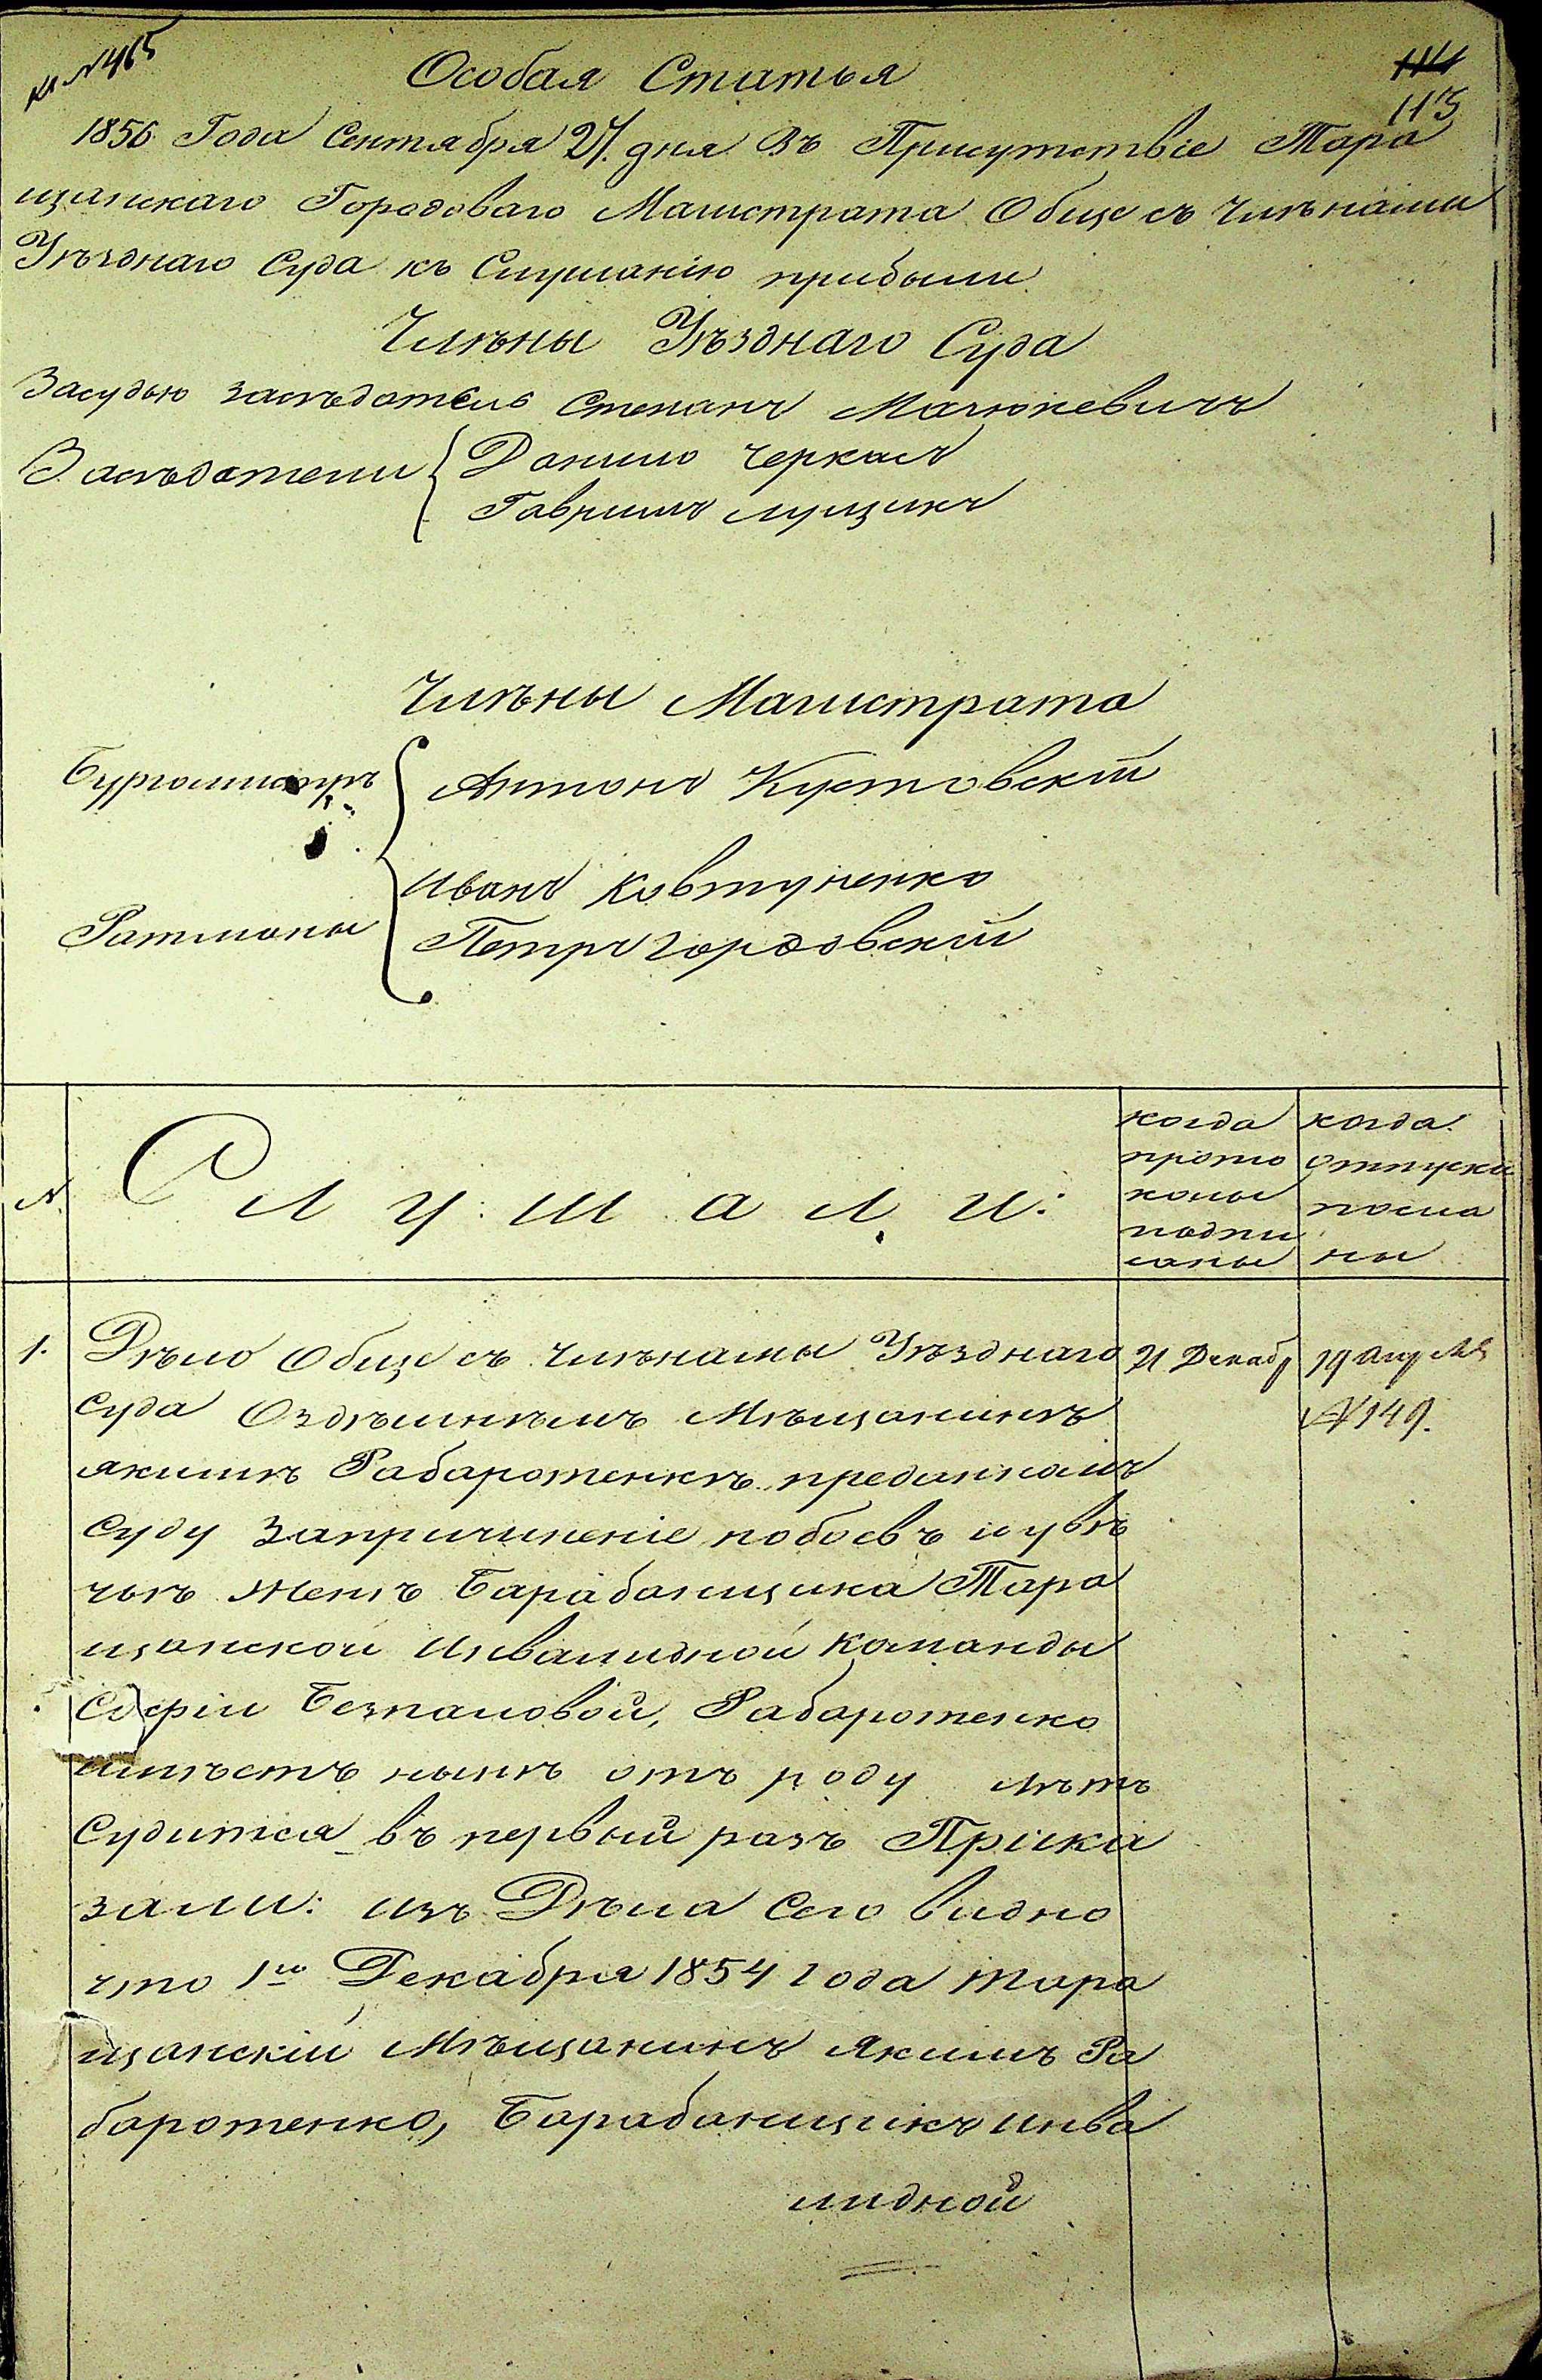 к № 465
Особая Статья
114
113
1856 Года Сентября 27. дня Въ Присутствіе Тара
щанскаго Городоваго Магистрата Обще съ Члѣнами
Уѣзднаго Суда къ Слушанію прибыли
Члѣны Уѣзднаго Суда
Засудью засѣдатель Степанъ Мацюкевичъ
Засѣдатели Данило Черкасъ
Гаврилъ Лущикъ
Члѣны Магистрата
Бургомистръ Антонъ Кустовскій
Иванъ Ковтуненко
Ратманы Петръ Гордовскій
№ Слушали:
когда прото колы подпи саны
когда отпуски посла ны
1. Дѣло Обще съ члѣнами Уѣзднаго 21 Декаб 19 Апреля
Суда Оздѣшнѣмъ Мѣщанинѣ № 149.
Якимѣ Рабаротенкѣ преданномъ
Суду Запричиненіе побоевъ и увѣ
чья Женѣ Барабанщика Тара
щанской Инвалидной Команды
Софіи Безпаловой, Рабаротенко
имѣетъ нынѣ отъ роду лѣтъ
Судится въ первый разъ Прика
зали: изъ Дѣла Сего видно
что 1го Декабря 1854 года тара
щанскій Мѣщанинъ Якимъ Ра
баротенко, Барабанщикъ инва
лидной